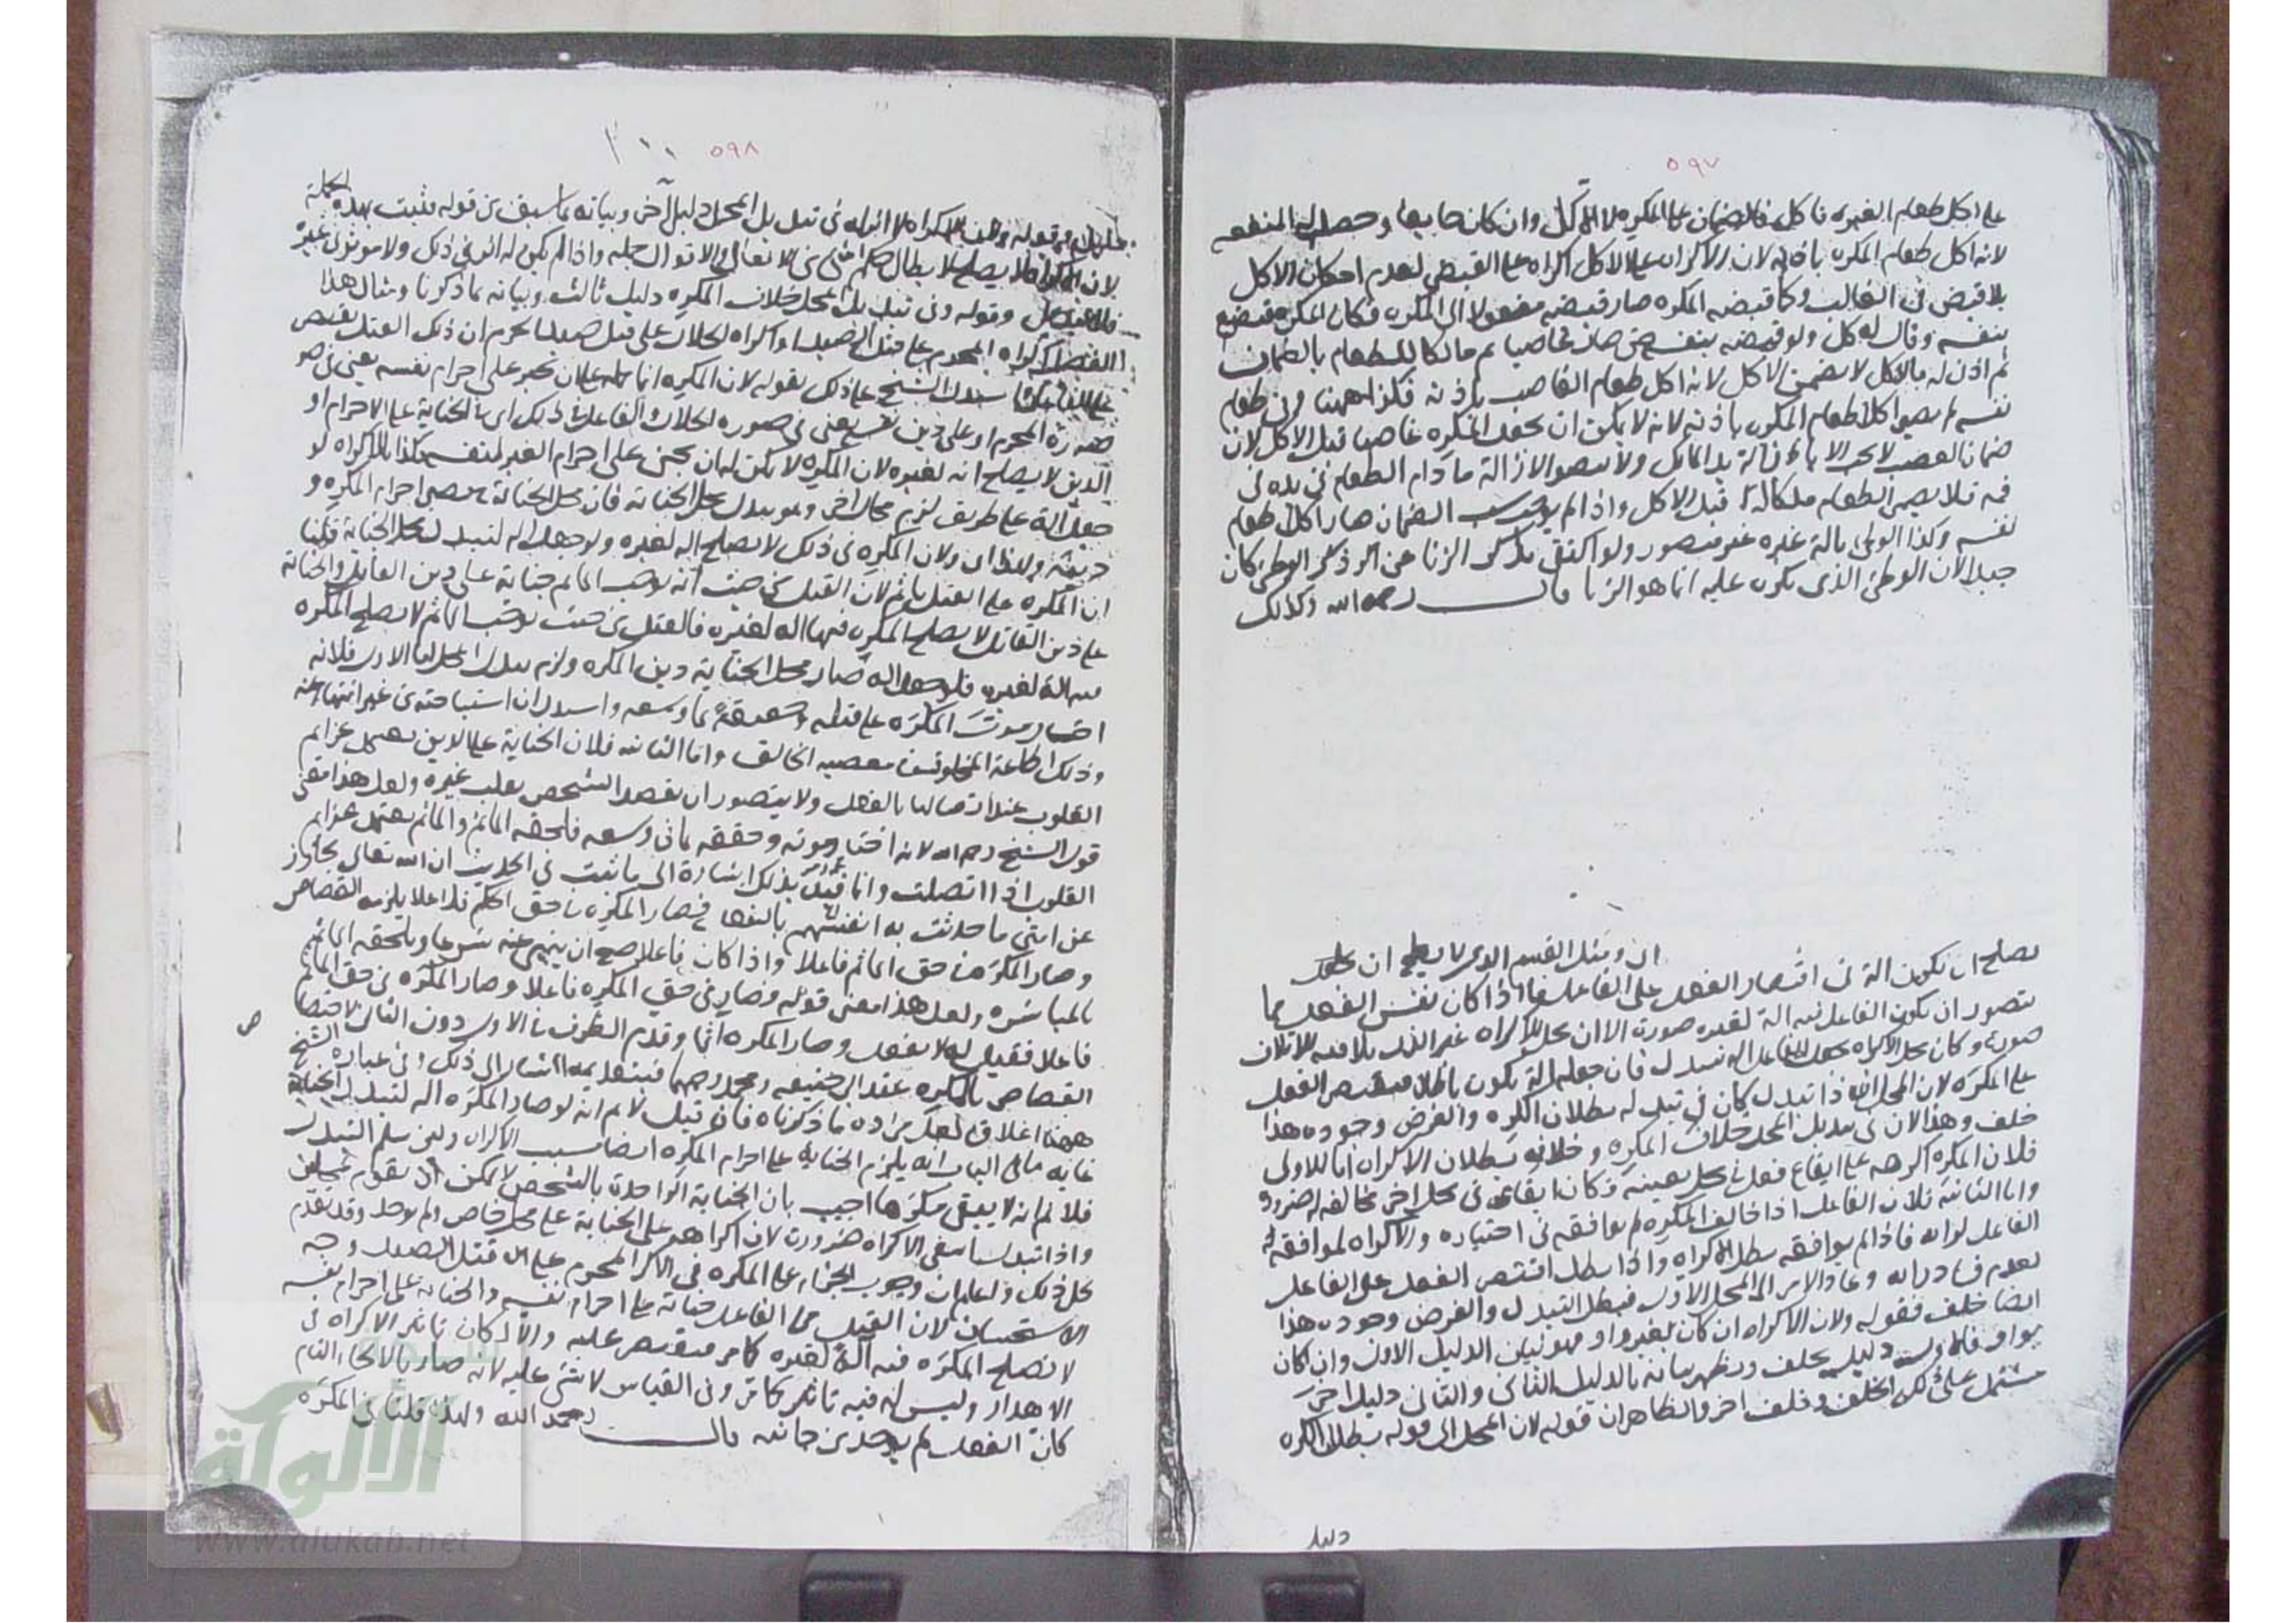 ٥٩٧
على اكل طعام الغير فاكل فالضمان على المكره لا الآكل وان كان جايعا وحصل له المنفعه
لانه اكل طعام المكره باذنه لان الاكراه على الاكل اكراه على القبض لعدم امكان الاكل
بلا قبض فى الغالب وكما قبضه المكره صار قبضه منقولا الى المكره فكان المكره قبضه
بنفسه وقال له كل ولو قبضه بنفسه حتى صار غاصبا ثم مالكا للطعام بالضمان
ثم اذن له بالاكل لا يضمن الاكل لانه اكل طعام الغاصب باذنه فكذا ههنا وفى طعام
نفسه لم يصر اكلا طعام المكره باذنه لانه لا يمكن ان يجعل المكره غاصبا قبل الاكل لان
ضمان الغصب لا يجب الا بازالة يد المالك ولا يتصور الازالة ما دام الطعام فى يده او فى
فمه فلا يصير الطعام ملكا له قبل الاكل واذا لم يوجد سبب الضمان صار اكلا طعام
نفسه وكذا الوطى بالة غيره غير متصور ولو اكتفى بذكر الزنا عن ذكر الوطئ كان
جيدا لان الوطئ الذى يكره عليه انما هو الزنا قال رحمه الله وكذلك
ان ومثل القسم الذى لا يصلح ان يجعل
يصلح ان يكون الة فى اقتصار الفعل على الفاعل ما اذا كان نفس الفعل مما
يتصور ان يكون الفاعل فيه الة لغيره صورة الا ان محل الاكراه غير الذى يلاقيه الاتلاف
صورة وكان محل الاكراه بجعل الفاعل الة تبدل فان جعله الة يكون باطلا فيقتصر الفعل
على المكره لان المحل اذا تبدل كان فى تبدله بطلان الكره والفرض وجوده هذا
خلف وهذا لان فى تبديل المحل خلاف المكره وخلافه بطلان الاكراه اما الاولى
فلان المكره اكرهه على ايقاع فعل فى محل بعينه فكان ايقاعه فى محل اخر مخالفه له ضرورة
واما الثانية فلان الفاعل اذا خالف المكره لم يوافقه فى اختياره والاكراه لموافقة
الفاعل لمراده فاذا لم يوافقه بطل الاكراه واذا بطل اقتصر الفعل على الفاعل
لعدم وعاد الامر الى المحل الاول فبطل التبدل والفرض وجوده هذا
ايضا خلف فقوله ولان الاكراه ان كان بغير واو فهو يبين الدليل الاول وان كان
بواو دليل بخلف وتظهر بيانه بالدليل الثانى والثانى دليل اخر
مشتمل على ذلك الخلف وخلف اخر والظاهر ان قوله لان المحل الى قوله بطلان الكره
دليل
٥٩٨
قوله لا اثر له فى تبديل المحل دليل اخر وبيانه ما سبق من قوله فثبت بهذه الجملة
لان الاكراه لا يصلح لابطال حكم شئ من الافعال والاقوال جملة واذا لم يكن له اثر فى ذلك ولا مؤثر غيره
وقوله وفى تبديل المحل خلاف المكره دليل ثالث وبيانه ما ذكرنا ومثال هذا
الفصل اكراه المحرم على قتل الصيد او اكراه الحلال على قتل صيد الحرم ان ذلك القتل يقتصر
على الفاعل استدل الشيخ على ذلك بقوله لان المكره انما حمله على ان يجنى على احرام نفسه يعنى فى صو
صورة المحرم او على دين نفسه يعنى فى صورة الحلال والفاعل فى ذلك اى فى الجناية على الاحرام او
الدين لا يصلح الة لغيره لان المكره لا يمكن له ان يجنى على احرام الغير بنفسه فكذا بالاكراه لو
جعل الة على طريق لزم محال اخر وهو تبدل محل الجناية فان محل الجناية يصير احرام المكره و
دينه ولهذا اى ولان المكره فى ذلك لا يصلح الة لغيره ولو جعل الة لتبدل محل الجناية قلنا
ان المكره على القتل يأثم لان القتل من حيث انه يوجب الماثم جناية على دين القاتل والجناية
على دين القاتل لا يصلح المكره فيها الة لغيره فالقتل من حيث يوجب الماثم لا يصلح المكره
فيه الة لغيره فلو جعل الة صار محل الجناية دين المكره ولزم تبدل المحل اما الاول فلانه
اختار موت المكره على قتله وحققه بما وسعه واستدل ان استباحته من غير انتهاء عنه
وذلك اطاعة المخلوق فى معصية الخالق واما الثانية فلان الجناية على الدين يعمل عزائم
القلوب عند اتصالها بالفعل ولا يتصور ان يقصد الشخص بقلب غيره ولعل هذا معنى
قول الشيخ رحمه الله لانه اختار موته وحققه بما فى وسعه فلحقه الماثم والماثم يعتمد عزائم
القلوب اذا اتصلت وانما قيد بذلك اشارة الى ما ثبت فى الحديث ان الله تعالى تجاوز
عن امتى ما حدثت به انفسهم بالفعل فصار المكره فى حق الحكم فاعلا يلزمه القصاص
وصار المكره فى حق الماثم فاعلا واذا كان فاعلا صح ان ينهى عنه شرعا ويلحقه الماثم
بالمباشره ولعل هذا معنى قوله وصار فى حق المكره فاعلا وصار المكره فى حق الماثم
فاعلا فقيل له لا تفعل وصار المكره اثما وقدم الظرف فى الاول دون الثانى لاختصا
ص
القصاص بالمكره عند ابى حنيفه ومحمد رحمهما فبتقديمه اشار الى ذلك وفى عبارة الشيخ
ههنا اغلاق لعل مراده ما ذكرناه فان قيل لا نم انه لو صار المكره الة لتبدل الجناية
غاية ما فى الباب انه يلزم الجناية على احرام المكره ايضا بسبب الاكراه ولئن سلم التبدل
فلا نم انه لا يبقى مكرها اجيب بان الجناية الواحدة بالشخص لا يمكن ان تقوم بمحلين
واذا تبدل انتفى الاكراه ضرورة لان اكراهه على الجناية على محل خاص ولم يوجد وقد تقدم
كل ذلك واعلم ان وجوب الجزاء على المكره فى اكراه المحرم على قتل الصيد وجه
الاستحسان لان القتل من الفاعل جناية على احرام نفسه والجناية على احرام نفسه
لا يصلح المكره فيه الة لغيره كما مر فيقتصر عليه والا لكان تاثير الاكراه فى
الاهدار وليس له فيه تاثير كما مر وفى القياس لا شئ عليه لانه صار بالالجاء التام
كان الفعل لم يوجد من جانبه قال رحمه الله ولهذا قلنا فى المكره
الألوكة
www.alukah.net